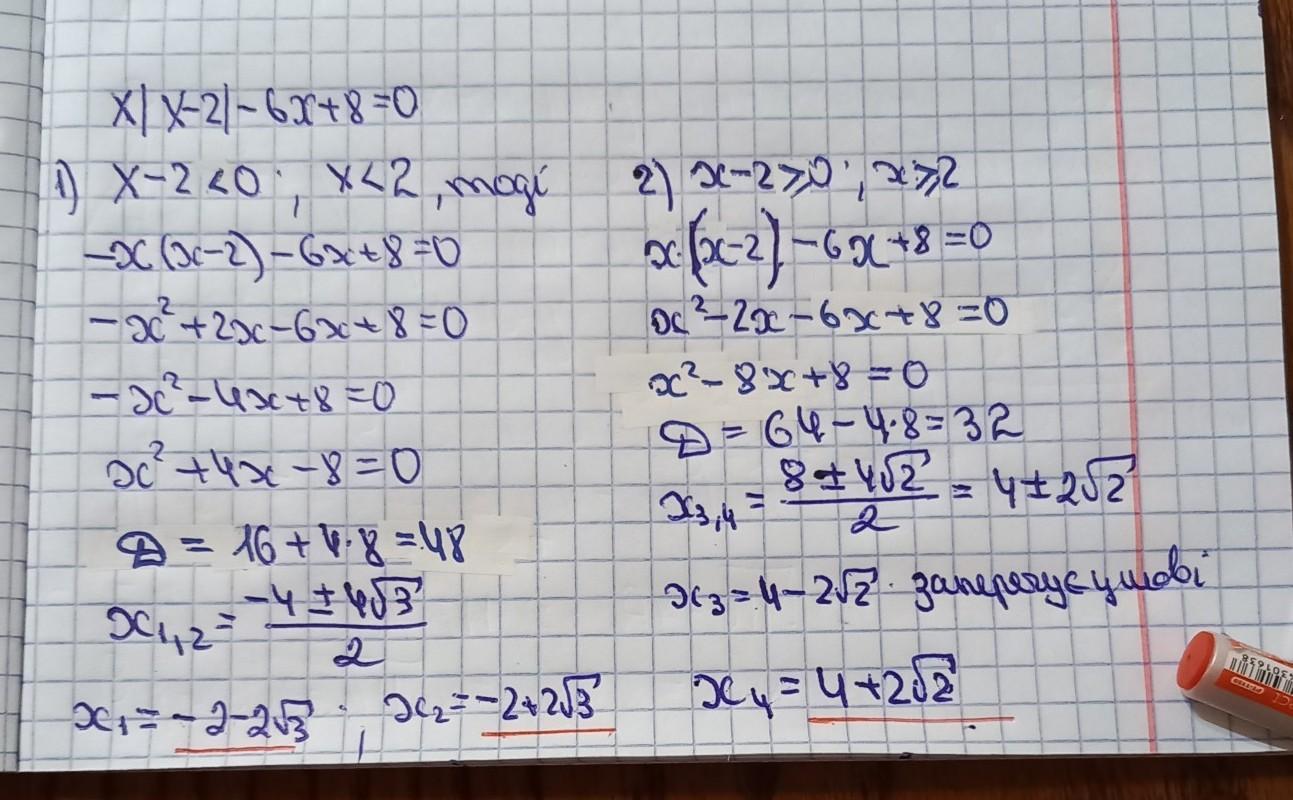 x|x-2|-6x+8=0
1) x-2<0; x<2, тоді
-x(x-2)-6x+8=0
-x²+2x-6x+8=0
-x²-4x+8=0
x²+4x-8=0
D = 16+4·8=48
x₁,₂ = (-4±4√3)/2
x₁=-2-2√3; x₂=-2+2√3
2) x-2⩾0; x⩾2
x·(x-2)-6x+8=0
x²-2x-6x+8=0
x²-8x+8=0
D = 64-4·8=32
x₃,₄ = (8±4√2)/2 = 4±2√2
x₃=4-2√2 заперечує умові
x₄ = 4+2√2